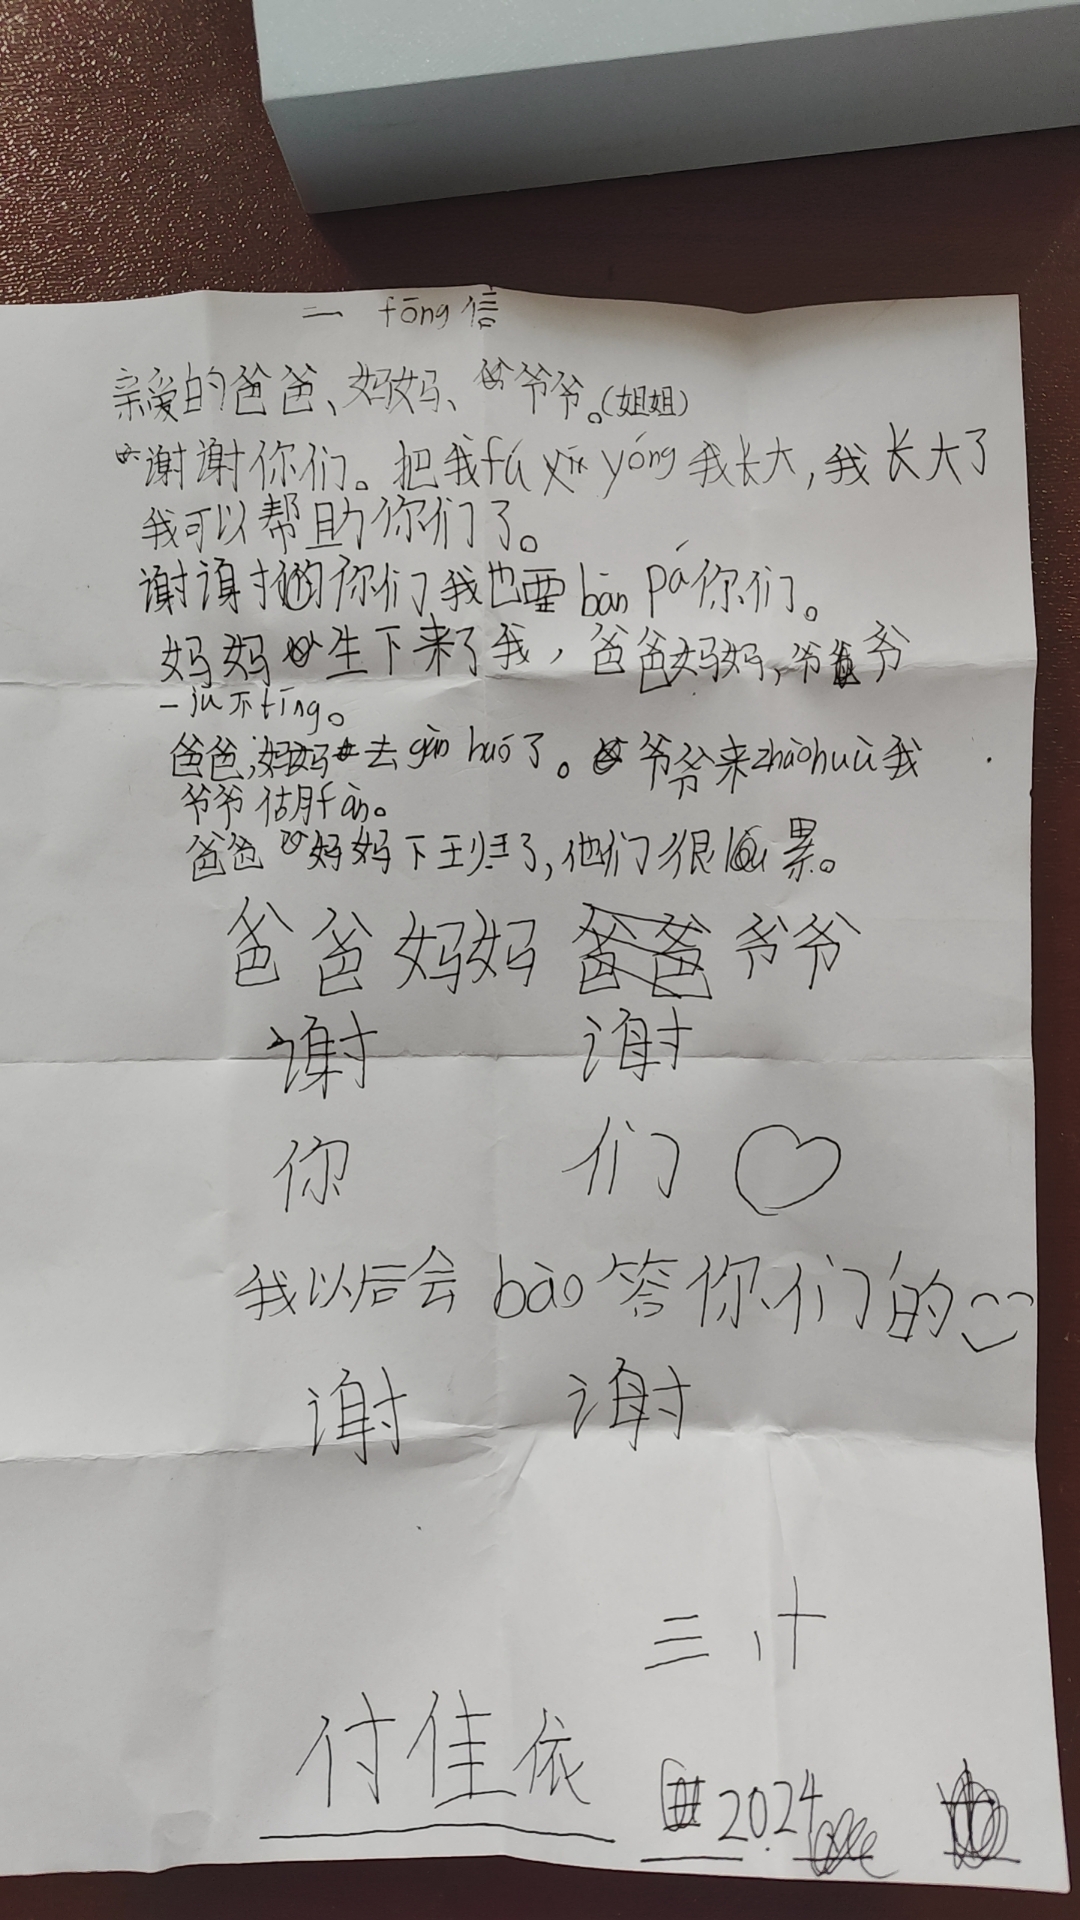 一 fōng信
亲爱的爸爸、妈妈、爷爷。(姐姐)
谢谢你们。把我fú yǎng我长大,我长大了
我可以帮助你们了。
谢谢你们我也要bān pá你们。
妈妈生下来了我,爸爸妈妈,爷爷
一jù不tīng。
爸爸,妈妈去gàn huó了。爷爷来zhàohuù我
爷爷做fàn。
爸爸妈妈下王归了,他们很累。
爸爸妈妈 爷爷
谢 谢
你 们
我以后会bào答你们的
谢 谢
三 . 十
付佳依
2024